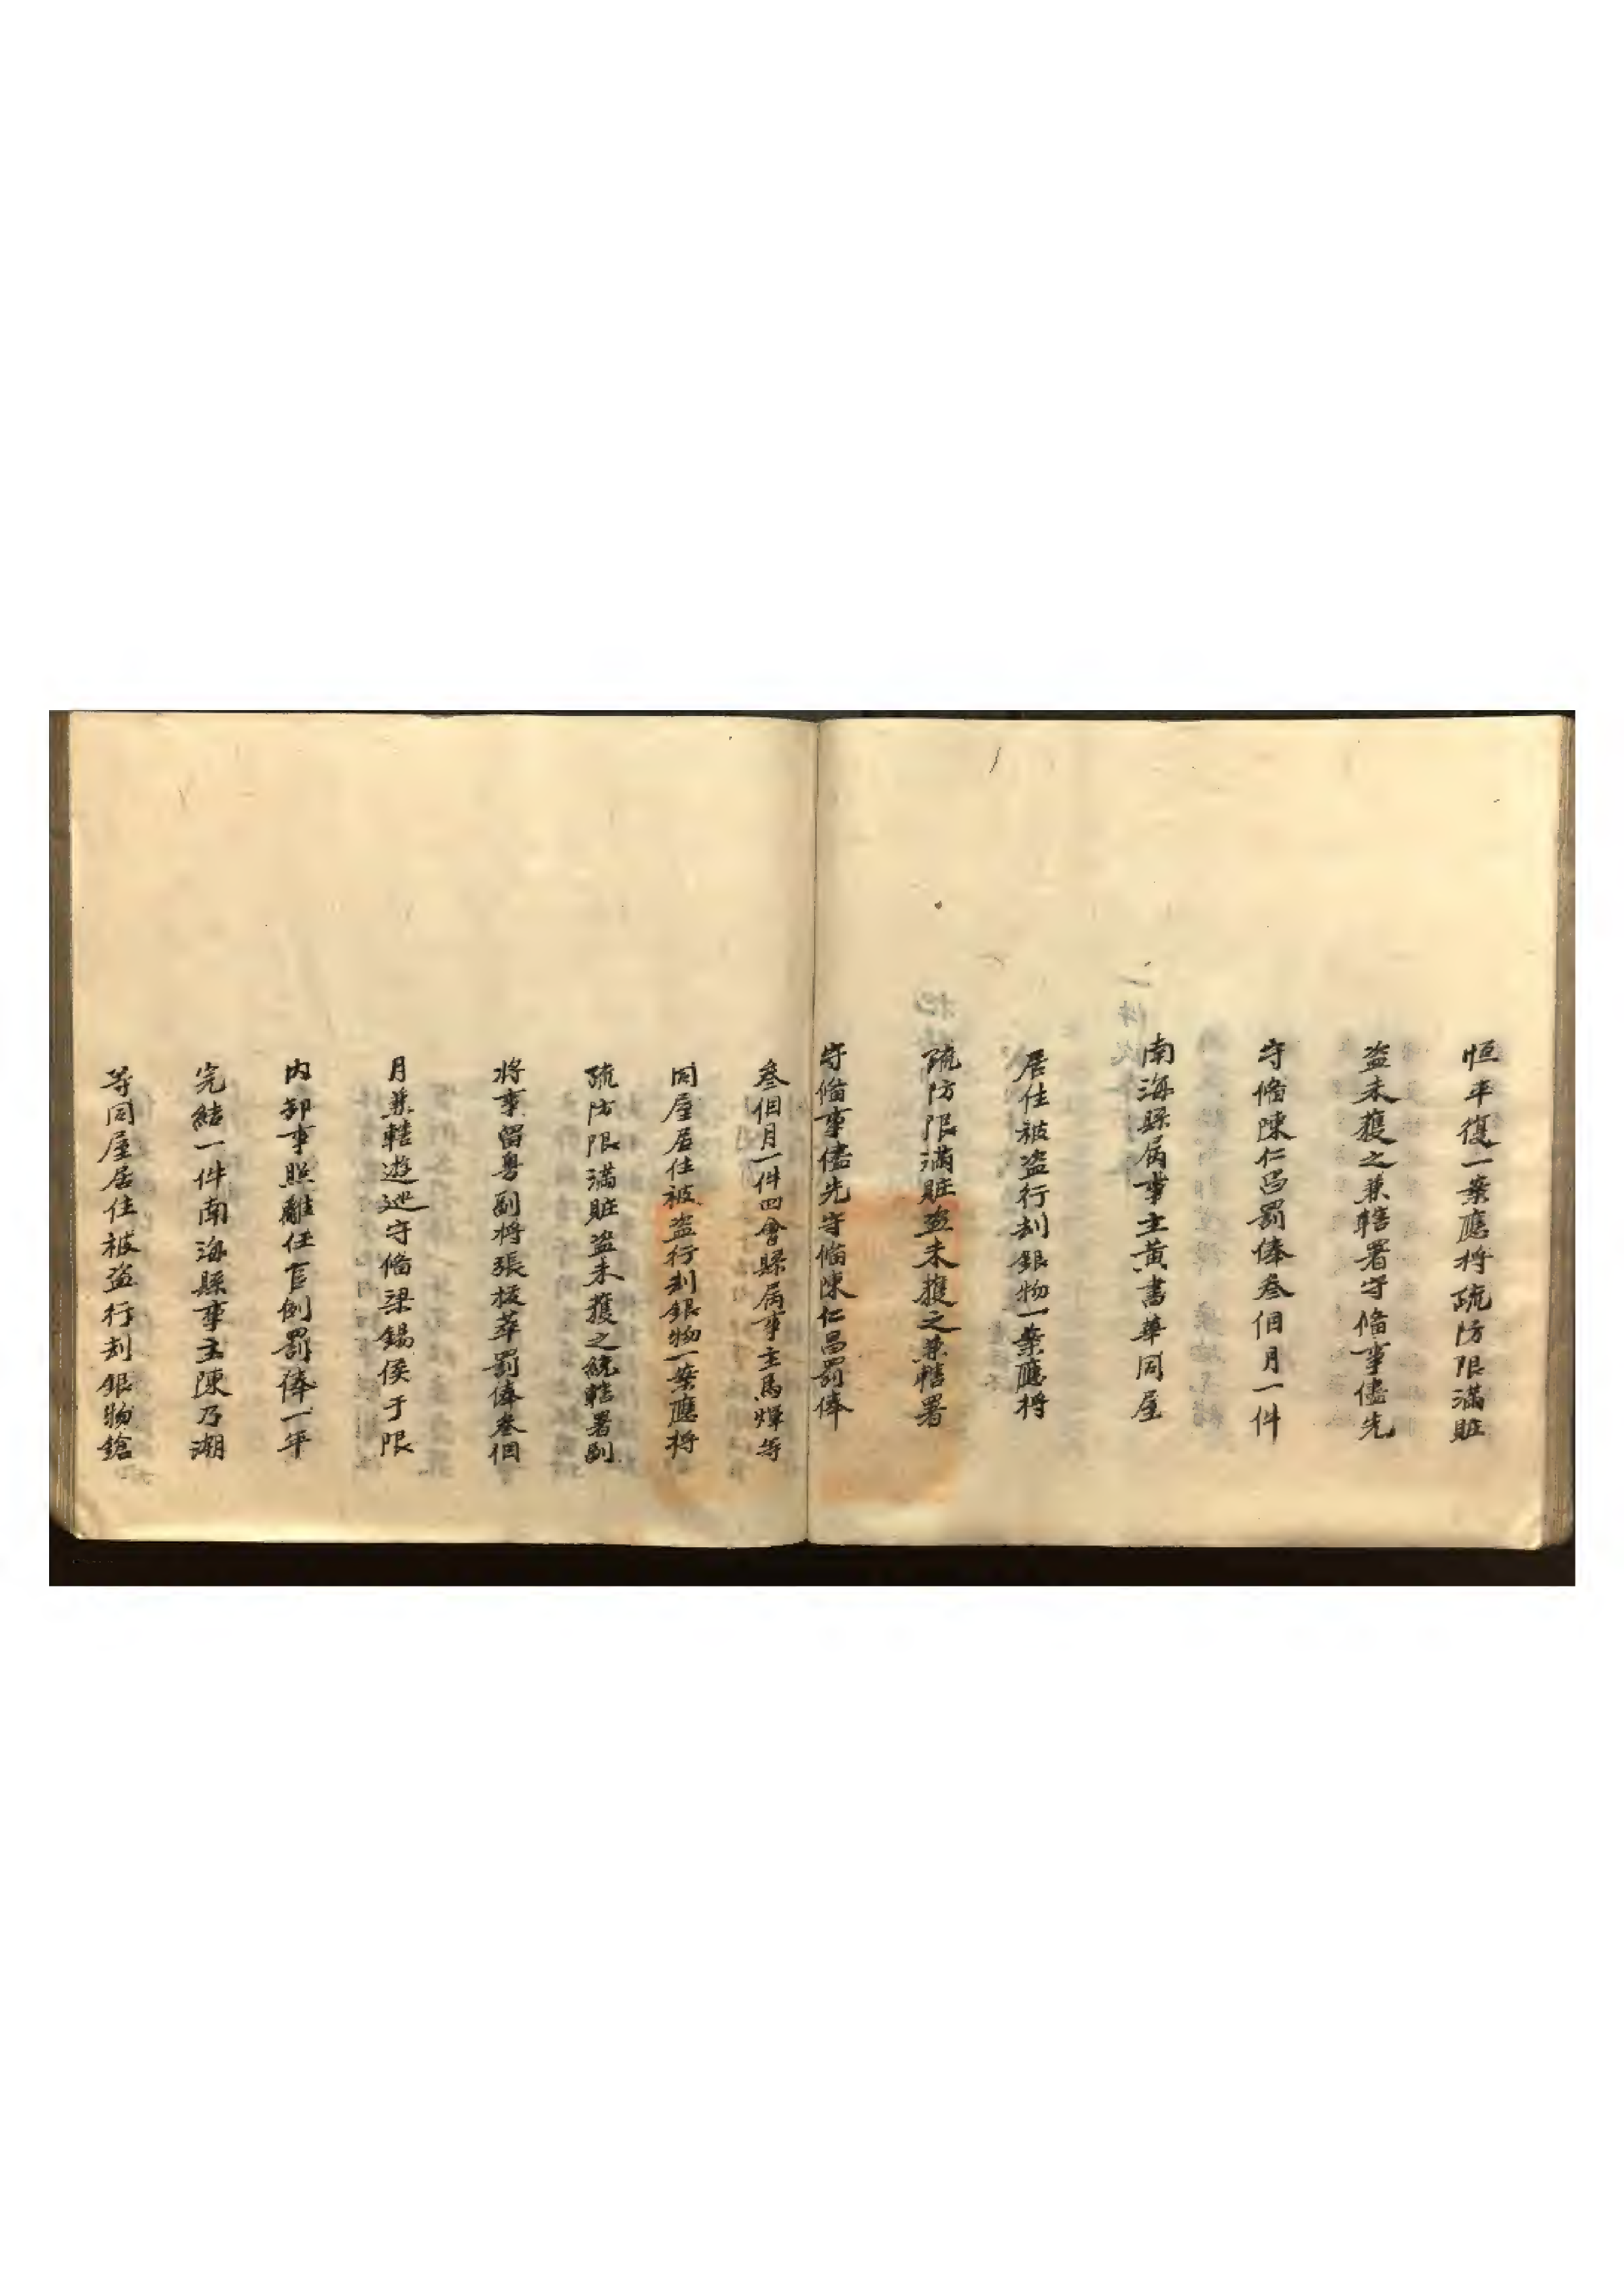 恒平復一案應将疏防限滿賍
盗未獲之兼轄署守俻事儘先
守俻陳仁昌罰俸叁個月一件
南海縣属事主黃書華同屋
居住被盗行刦銀物一案應将
疏防限滿賍盗未獲之兼轄署
守俻事儘先守俻陳仁昌罰俸
叁個月一件四會縣属事主馬燀等
同屋居住被盗行刦銀物一案應将
疏防限滿賍盗未獲之統轄署副
將事留粤副将張拔萃罰俸叁個
月兼轄遊廵守俻梁錫侯于限
内卸事照離任官例罰俸一年
完結一件南海縣事主陳乃潮
等同屋居住被盗行刦銀物鎗